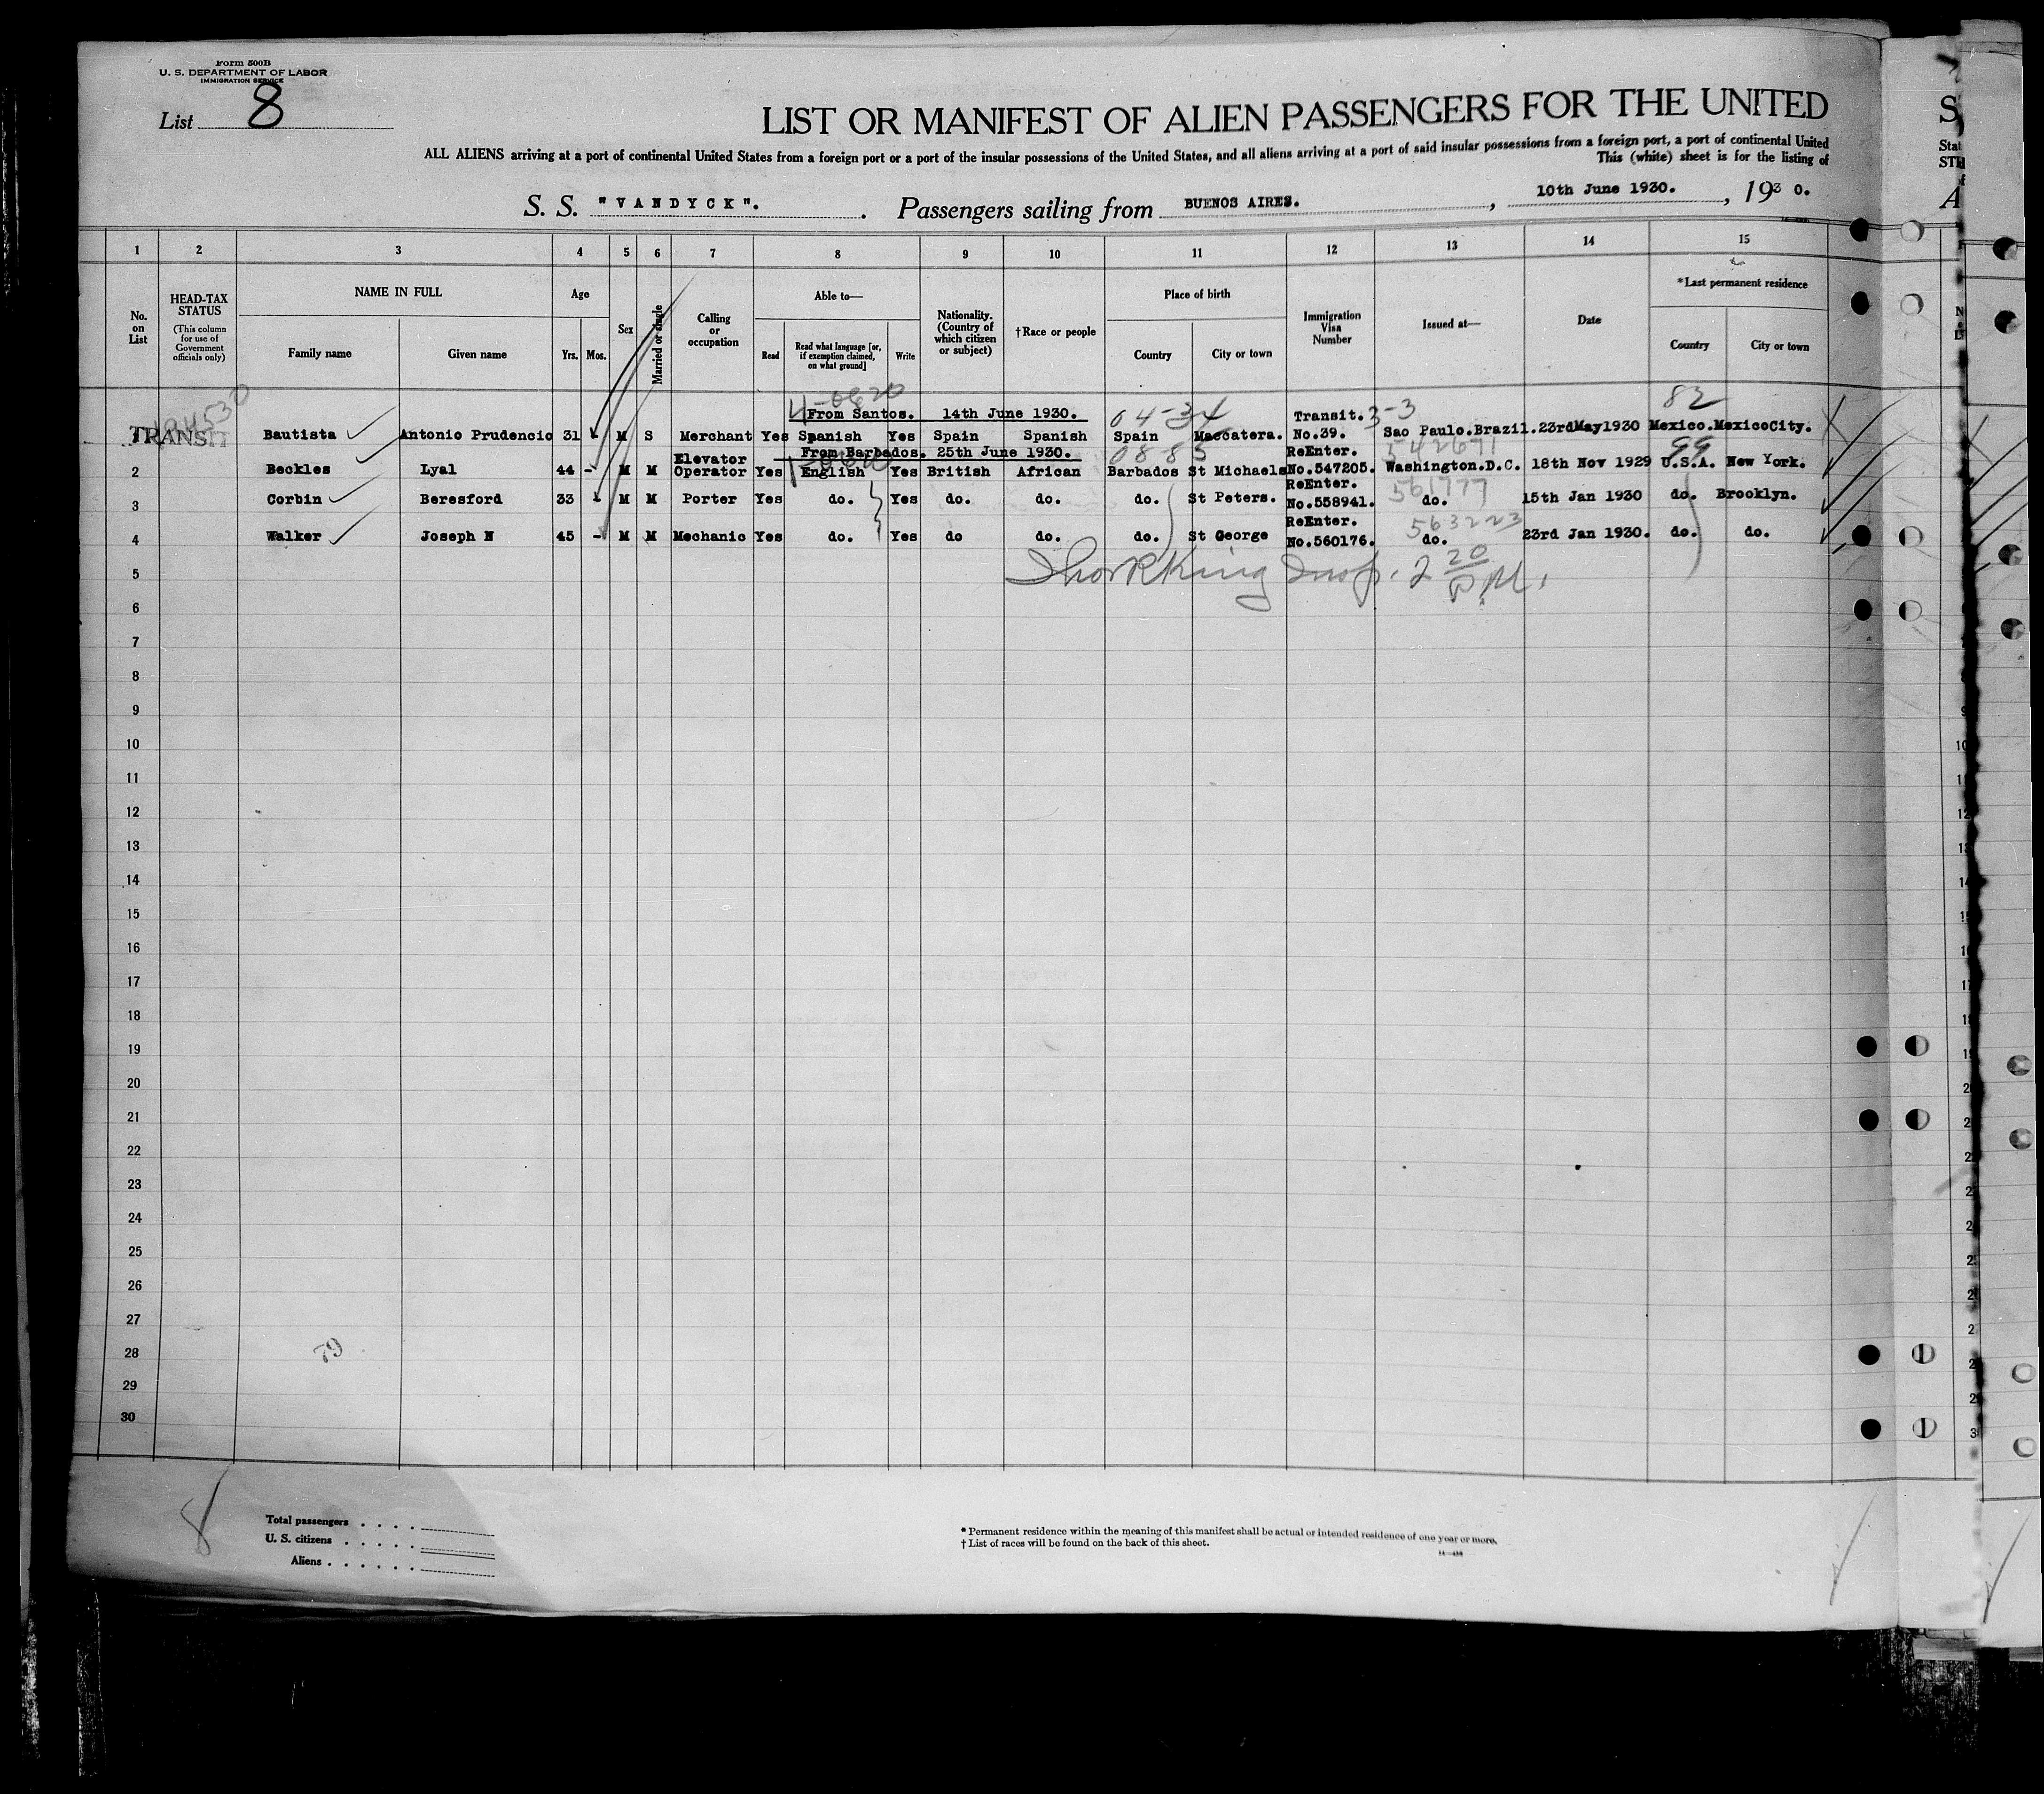 Form 500B
U. S. DEPARTMENT OF LABOR
IMMIGRATION SERVICE
List 8
LIST OR MANIFEST OF ALIEN PASSENGERS FOR THE UNITED
ALL ALIENS arriving at a port of continental United States from a foreign port or a port of the insular possessions of the United States, and all aliens arriving at a port of said insular possessions from a foreign port, a port of continental United
This (white) sheet is for the listing of
S. S. "VANDYCK". Passengers sailing from BUENOS AIRES. , 10th June 1930. , 1930.
1 2 3 4 5 6 7 8 9 10 11 12 13 14 15
No. on List HEAD-TAX STATUS (This column for use of Government officials only) NAME IN FULL Family name Given name Age Yrs. Mos. Sex Married or single Calling or occupation Able to— Read Read what language [or, if exemption claimed, on what ground] Write Nationality. (Country of which citizen or subject) †Race or people Place of birth Country City or town Immigration Visa Number Issued at— Date *Last permanent residence Country City or town
From Santos. 14th June 1930. 04-34 3-3 82
1 TRANSIT Bautista Antonio Prudencio 31 - M S Merchant Yes Spanish Yes Spain Spanish Spain Maccatera. Transit. No.39. Sao Paulo.Brazil. 23rdMay1930 Mexico. MexicoCity.
From Barbados. 25th June 1930. 08-85 542671 99
2 Beckles Lyal 44 - M M Elevator Operator Yes English Yes British African Barbados St Michaels ReEnter. No.547205. Washington.D.C. 18th Nov 1929 U.S.A. New York.
3 Corbin Beresford 33 - M M Porter Yes do. Yes do. do. do. St Peters. ReEnter. No.558941. 561777 do. 15th Jan 1930 do. Brooklyn.
4 Walker Joseph N 45 - M M Mechanic Yes do. Yes do do. do. St George ReEnter. No.560176. 563223 do. 23rd Jan 1930. do. do.
5 King Insp. 2 20 P.M.
6
7
8
9
10
11
12
13
14
15
16
17
18
19
20
21
22
23
24
25
26
27
28 79
29
30
8
Total passengers
U. S. citizens
Aliens
* Permanent residence within the meaning of this manifest shall be actual or intended residence of one year or more.
† List of races will be found on the back of this sheet.